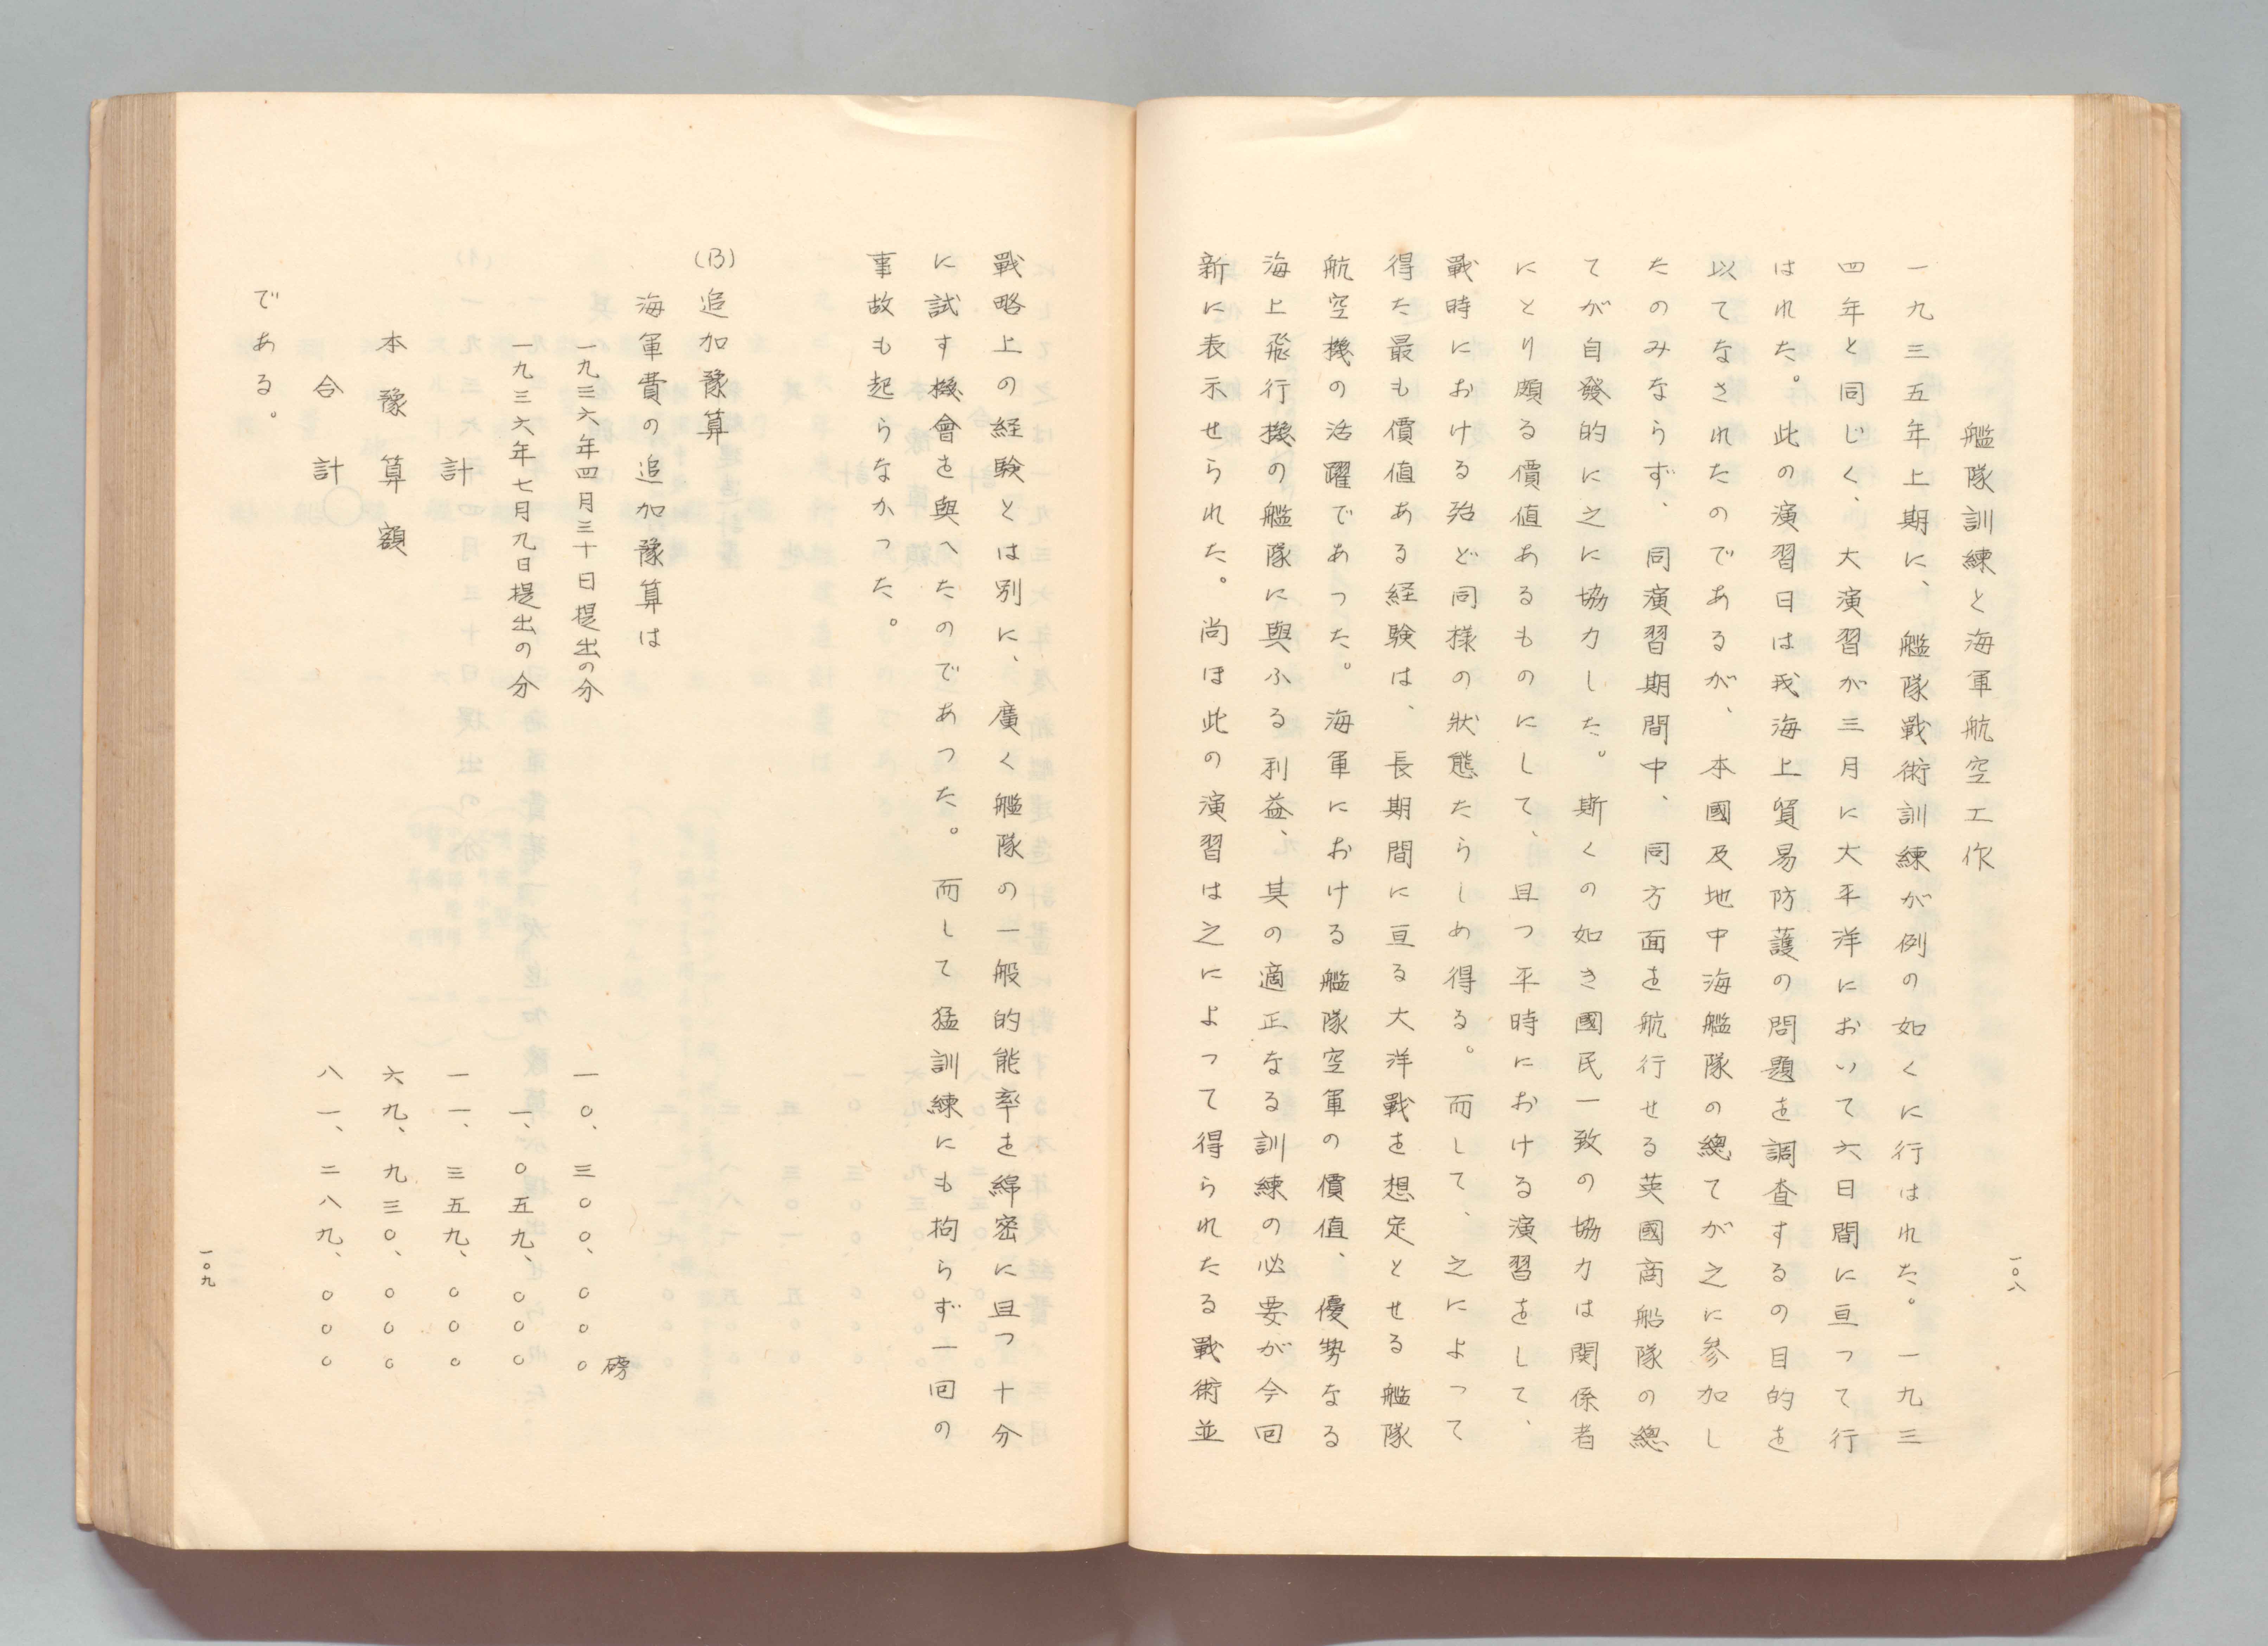 一〇八
艦隊訓練と海軍航空工作
一九三五年上期に、艦隊戰術訓練が例の如くに行はれた。一九三
四年と同じく、大演習が三月に大平洋において六日間に亘つて行
はれた。此の演習日は我海上貿易防護の問題を調査するの目的を
以てなされたのであるが、本國及地中海艦隊の總てが之に参加し
たのみならず、同演習期間中、同方面を航行せる英國商船隊の總
てが自發的に之に協力した。斯くの如き國民一致の協力は関係者
にとり頗る價値あるものにして、且つ平時における演習をして、
戰時における殆ど同様の狀態たらしめ得る。而して、之によつて
得た最も價値ある経験は、長期間に亘る大洋戰を想定とせる艦隊
航空機の活躍であつた。海軍における艦隊空軍の價値、優勢なる
海上飛行機の艦隊に與ふる利益、其の適正なる訓練の必要が今回
新に表示せられた。尚ほ此の演習は之によつて得られたる戰術並
戰略上の経験とは別に、廣く艦隊の一般的能率を綿密に且つ十分
に試す機會を與へたのであつた。而して猛訓練にも拘らず一回の
事故も起らなかつた。
(B)追加豫算
海軍費の追加豫算は
一九三六年四月三十日提出の分 一〇、三〇〇、〇〇〇磅
一九三六年七月九日提出の分 一、〇五九、〇〇〇
計 一一、三五九、〇〇〇
本豫算額 六九、九三〇、〇〇〇
合計 八一、二八九、〇〇〇
である。
一〇九